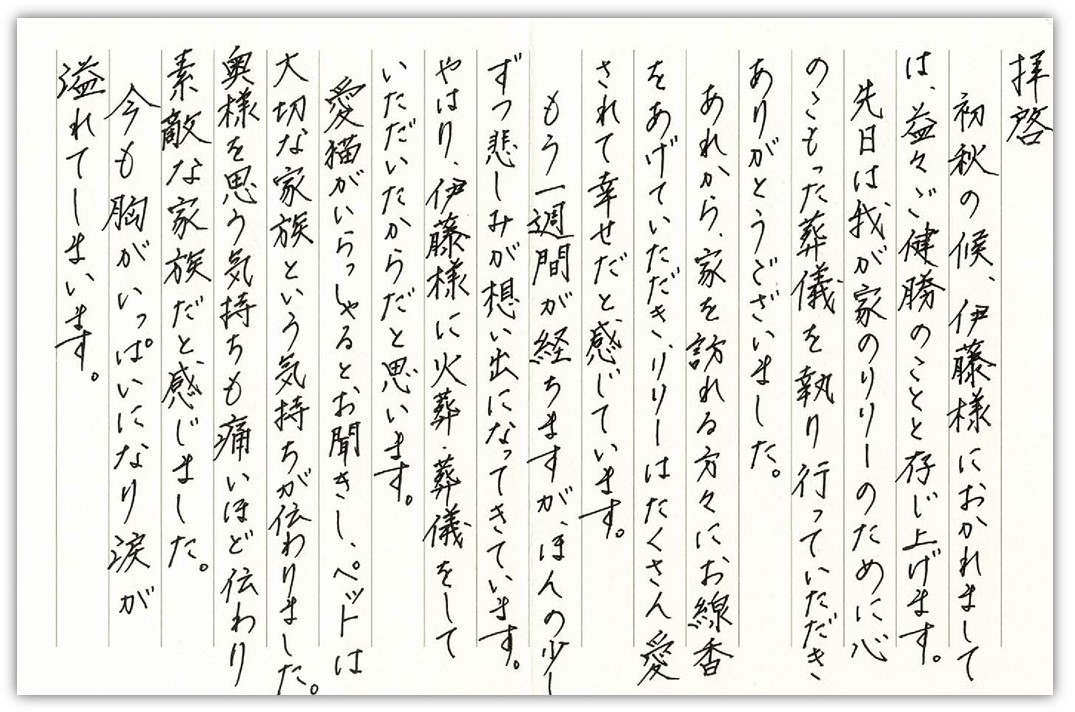 拝啓
初秋の候、伊藤様におかれまして
は、益々ご健勝のことと存じ上げます。
先日は我が家のリリーのために心
のこもった葬儀を執り行っていただき
ありがとうございました。
あれから、家を訪れる方々にお線香
をあげていただき、リリーはたくさん愛
されて幸せだと感じています。
もう一週間が経ちますが、ほんの少し
ずつ悲しみが想い出になってきています。
やはり、伊藤様に火葬・葬儀をして
いただいたからだと思います。
愛猫がいらっしゃると、お聞きし、ペットは
大切な家族という気持ちが伝わりました。
奥様を思う気持ちも痛いほど伝わり
素敵な家族だと、感じました。
今も胸がいっぱいになり涙が
溢れてしまいます。